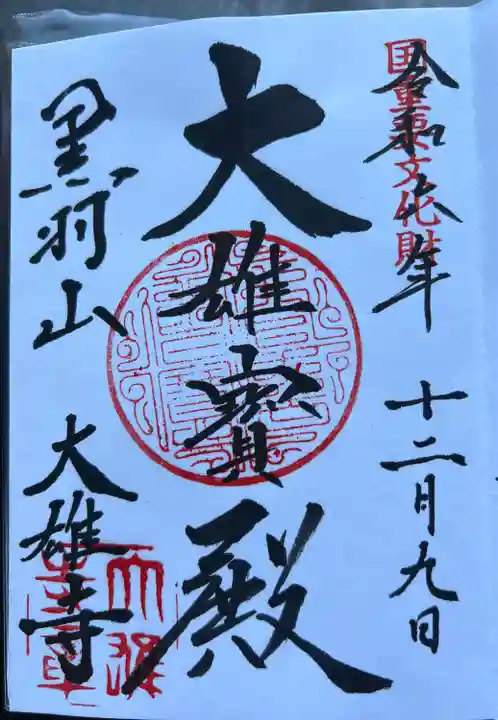 国重要文化財
令和六年 十二月九日
大雄寳殿
黒羽山 大雄寺